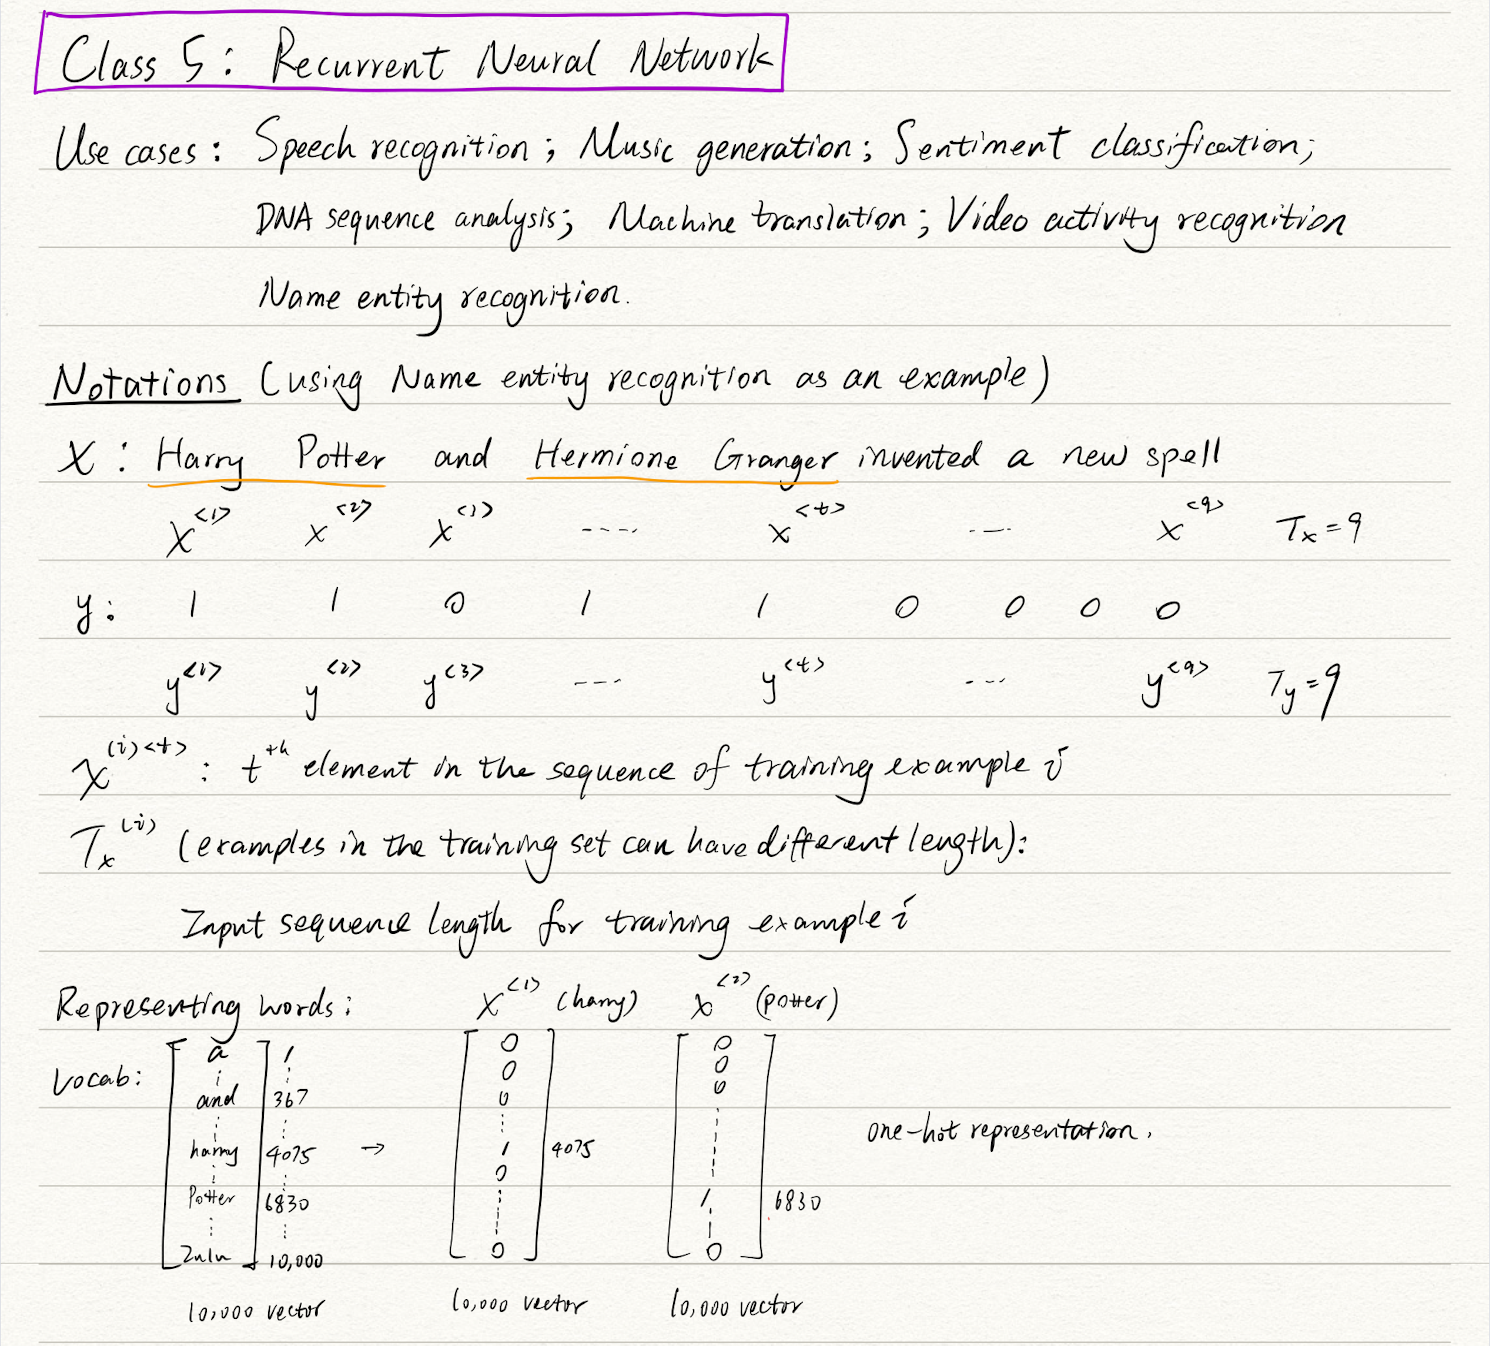 Class 5: Recurrent Neural Network
Use cases: Speech recognition; Music generation; Sentiment classification;
DNA sequence analysis; Machine translation; Video activity recognition
Name entity recognition.
Notations (using Name entity recognition as an example)
X: Harry Potter and Hermione Granger invented a new spell
X<1> x<2> x<1> ---- x<t> --- x<9> Tx=9
y: 1 1 0 1 1 0 0 0 0
y<1> y<2> y<3> --- y<t> --- y<9> Ty=9
X(i)<t>: tth element in the sequence of training example i
Tx(i) (examples in the training set can have different length):
Input sequence length for training example i
Representing words: X<1> (harry) x<2> (potter)
Vocab:
a 1
and 367
harry 4075 →
Potter 6830
Zulu 10,000
10,000 vector
0
0
0
1 4075
0
0
10,000 vector
0
0
0
1 6830
0
10,000 vector
one-hot representation.